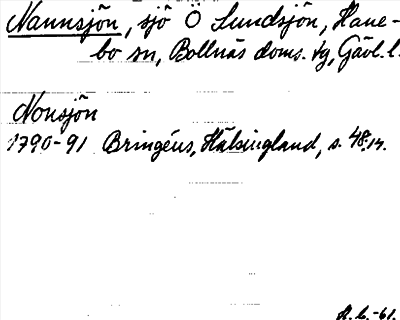 Nannsjön, sjö Ö Lundsjön, Hane-
bo sn, Bollnäs doms. tg, Gävl. l.
Nonsjön
1790-91 Bringéus, Hälsingland, s. 48:14.
R.L.-61.